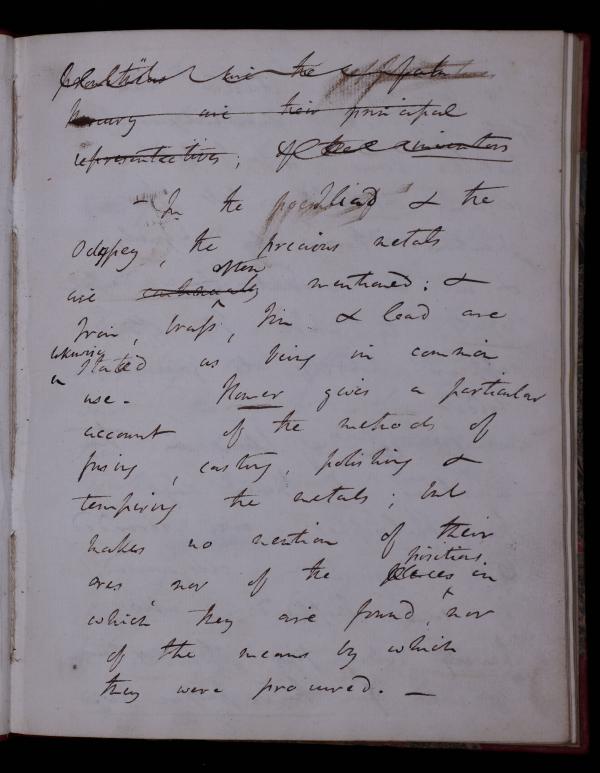 are the
Mercury are their principal
representatives; of the inventors
— In the Illiad & the
Odyssey, the precious metals
often
are continually mentioned; &
Iron, brass, Tin & lead are
likewise
stated as being in common
use. — Homer gives a particular
account of the methods of
fusing, casting, polishing &
tempering the metals; but
makes no mention of their
positions
ores nor of the places in
which they are found, nor
of the means by which
they were procured. —